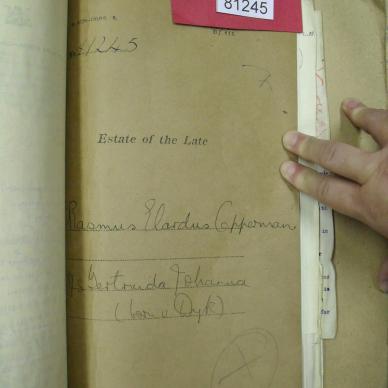 81245
1245
Estate of the Late
Rasmus Elardus Copperman
Gertruida Johanna
(born v Dyk)